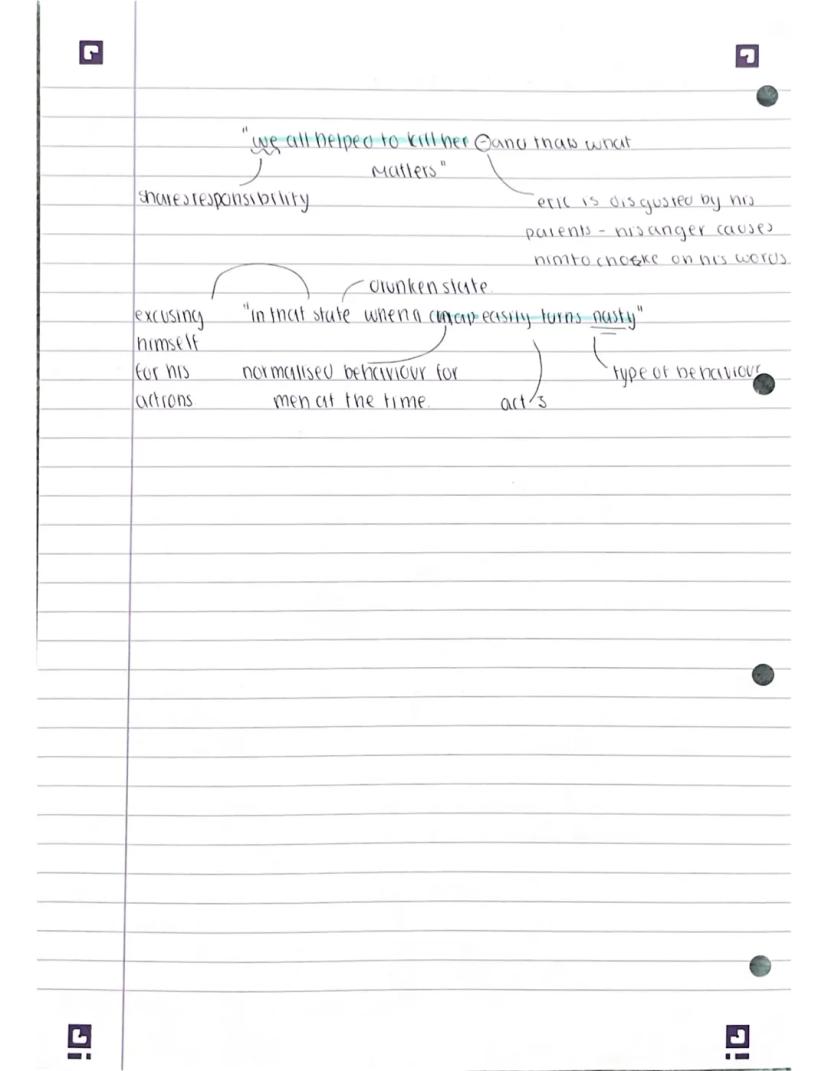 "we all helped to kill her - and thats what
matters"
shares responsibility
eric is disgusted by his
parents - his anger causes
him to choke on his words
drunken state
excusing "in that state when a chap easily turns nasty"
himself
for his normalised behaviour for type of behaviour
actions men at the time. act 3